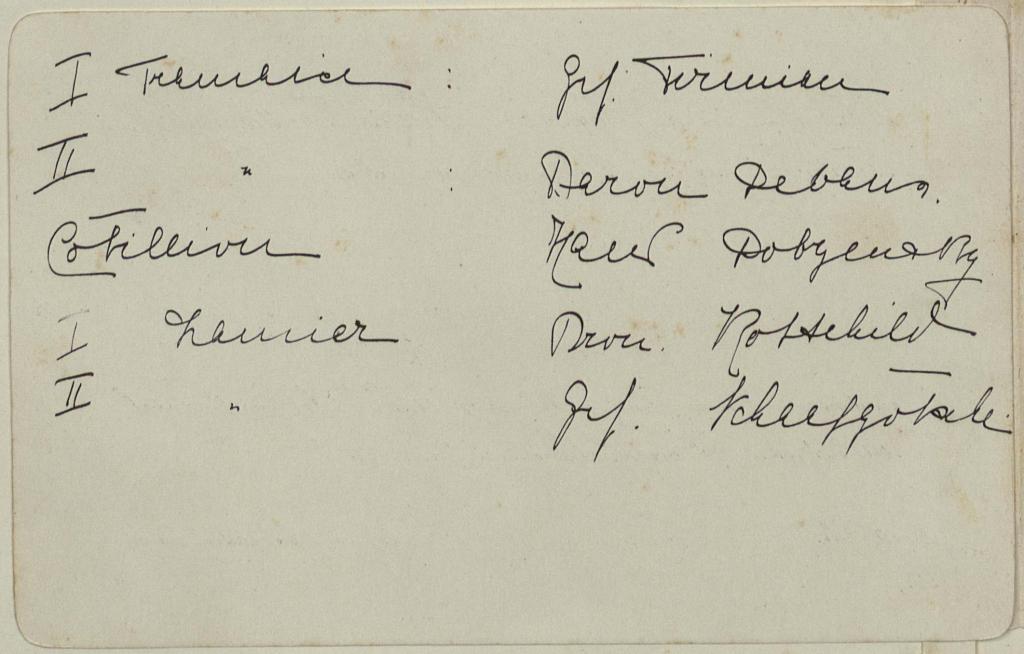 I Francaise : Grf. Firmian
II " : Baron Debans.
Cotillion Hans Dobzensky
I Lancier Bron. Rottschild
II " Grf. Schaffgotsch